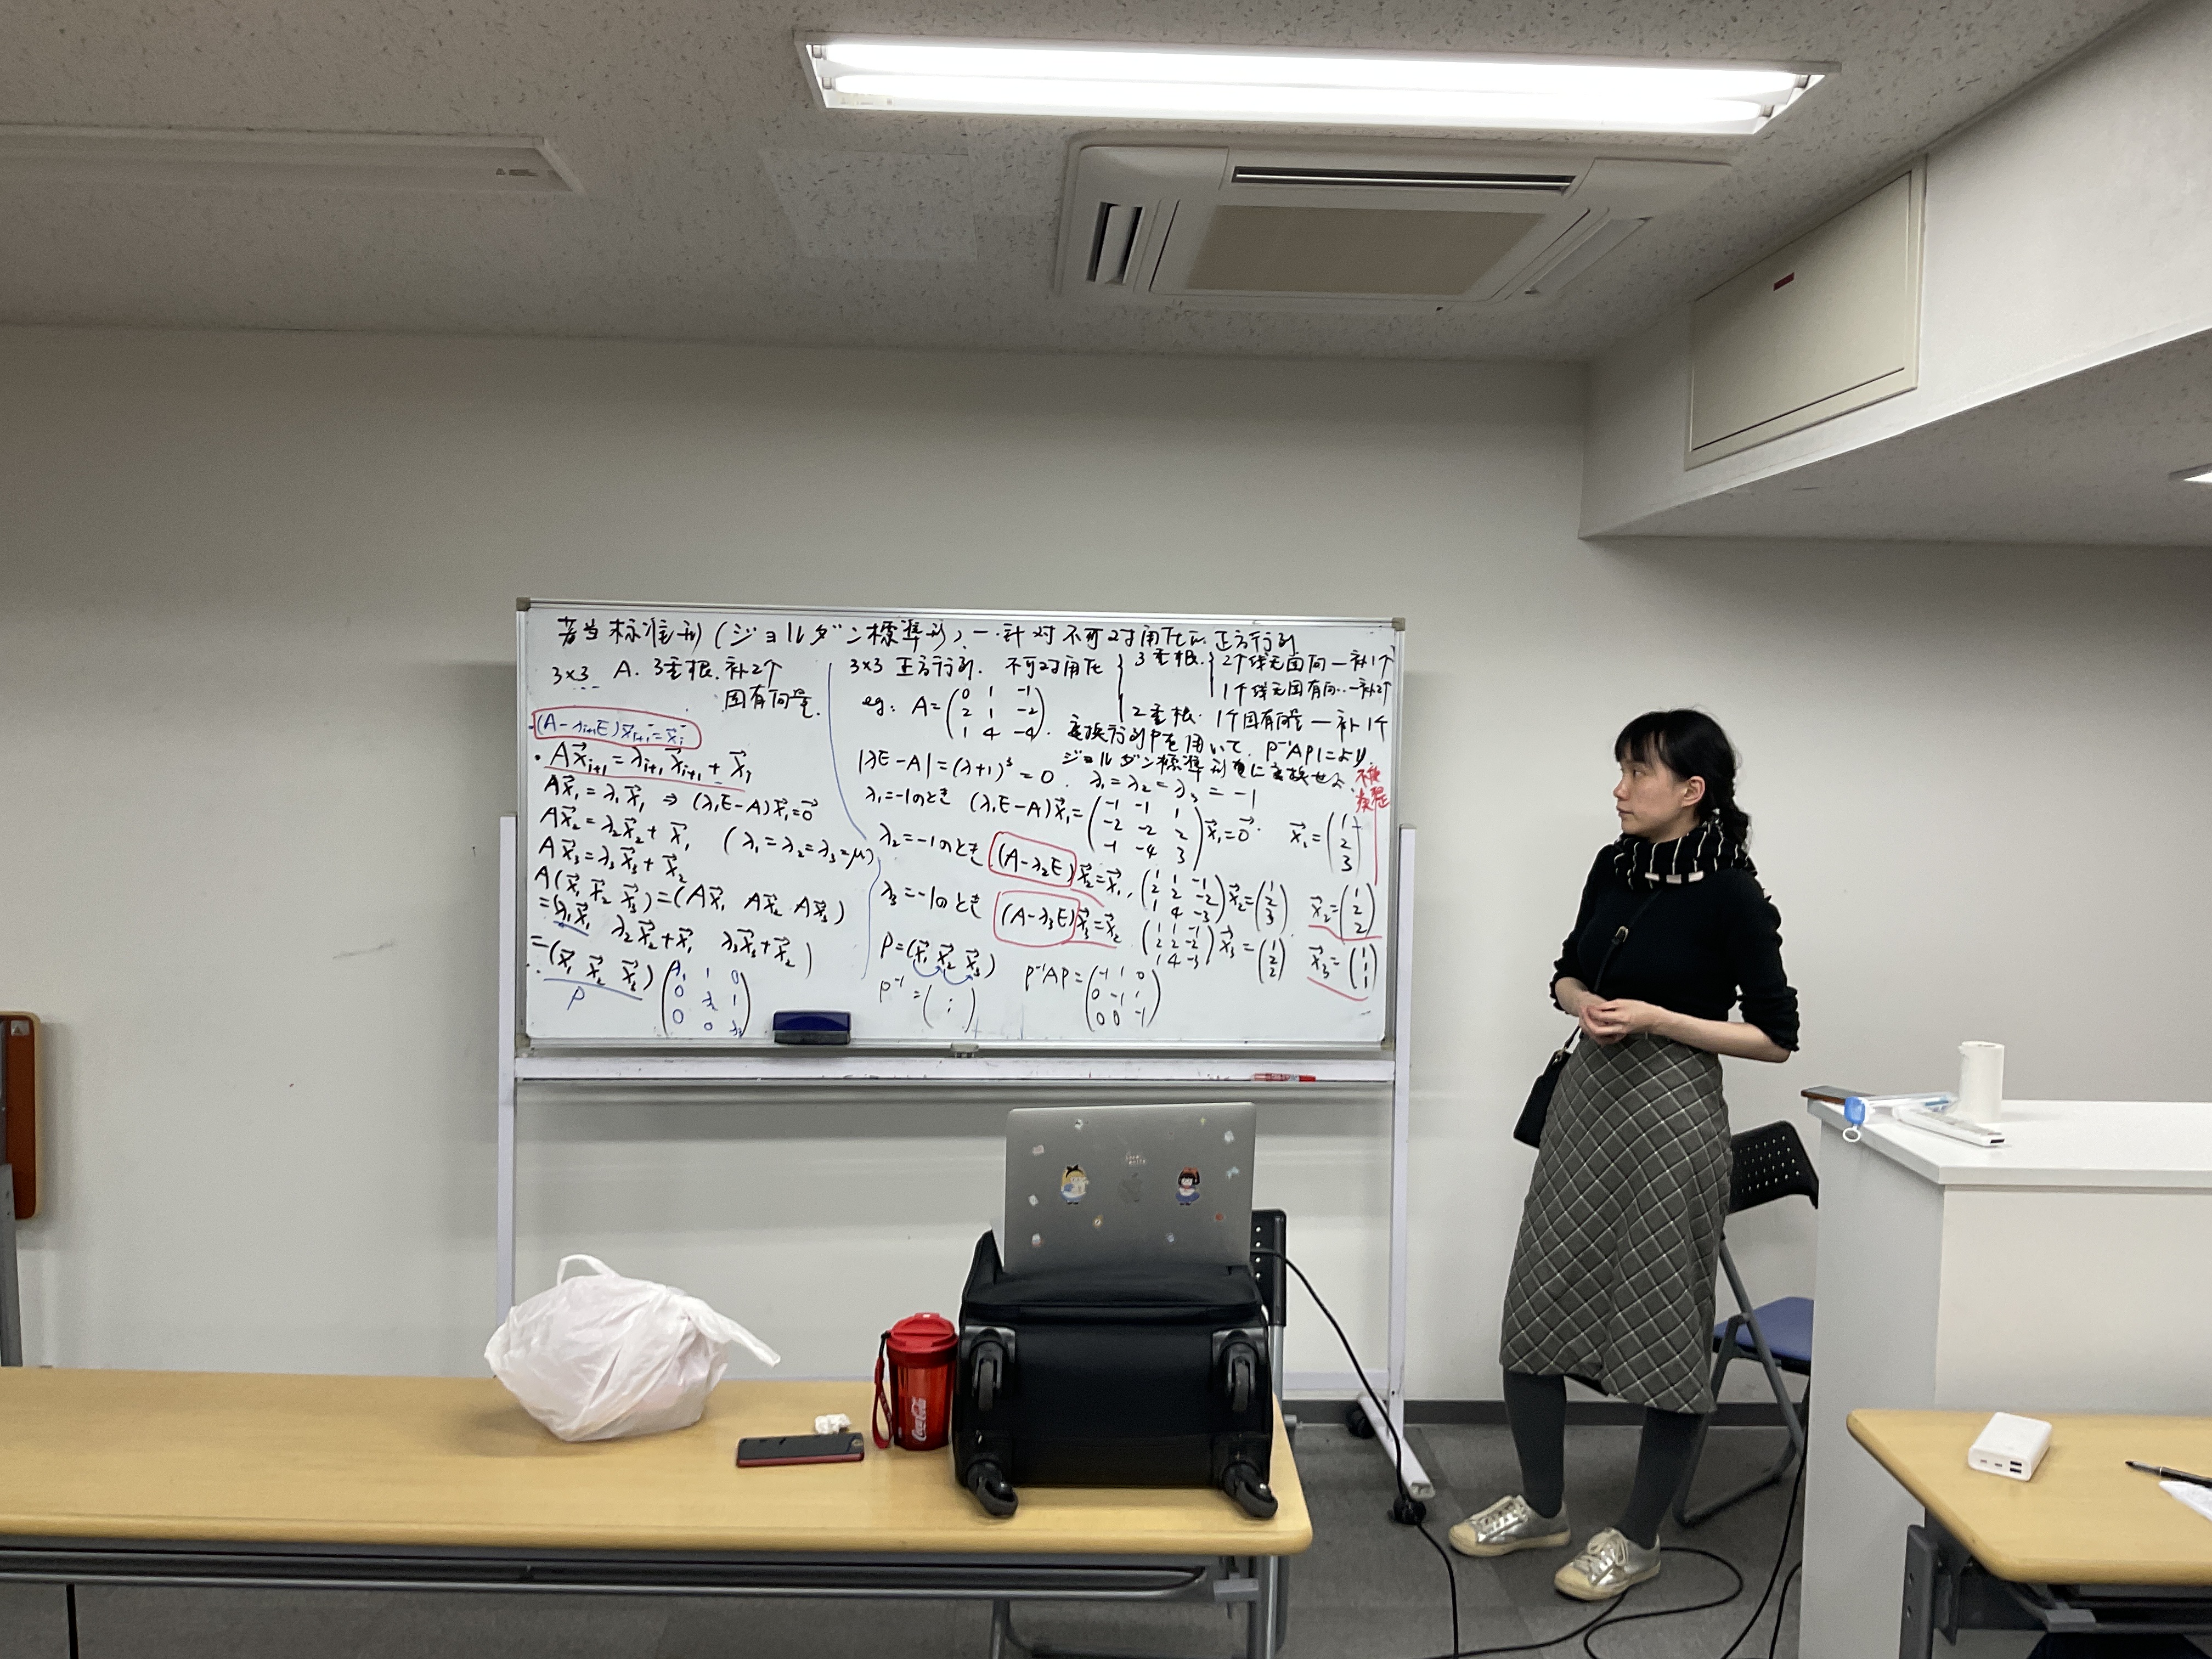 若当标准形(ジョルダン標準形)—针对不可对角化の正方行列
3×3 A. 3重根.补2个
固有向量.
(A-λᵢ₊₁E)x⃗ᵢ₊₁=x⃗ᵢ
・Ax⃗ᵢ₊₁=λᵢ₊₁x⃗ᵢ₊₁+x⃗ᵢ
Ax⃗₁=λ₁x⃗₁ ⇒ (λ₁E-A)x⃗₁=0⃗
Ax⃗₂=λ₂x⃗₂+x⃗₁ (λ₁=λ₂=λ₃=μ)
Ax⃗₃=λ₃x⃗₃+x⃗₂
A(x⃗₁ x⃗₂ x⃗₃)=(Ax⃗₁ Ax⃗₂ Ax⃗₃)
=(λ₁x⃗₁ λ₂x⃗₂+x⃗₁ λ₃x⃗₃+x⃗₂)
=(x⃗₁ x⃗₂ x⃗₃)(λ₁ 1 0
0 λ₂ 1
0 0 λ₃)
P
3×3 正方行列. 不可对角化
3重根.
2个线无固向—补1个
1个线无固有向..—补2个
2重根. 1个固有向量—补1个
eg: A=(0 1 -1
2 1 -2
1 4 -4).
変換行列Pを用いて. P⁻¹APにより.
ジョルダン標準形に変換せよ.
|λE-A|=(λ+1)³=0. λ₁=λ₂=λ₃=-1
λ₁=-1のとき (λ₁E-A)x⃗₁=(-1 -1 1
-2 -2 2
-1 -4 3)x⃗₁=0⃗. x⃗₁=(1
2
3)
λ₂=-1のとき (A-λ₂E)x⃗₂=x⃗₁, (1 1 -1
2 2 -2
1 4 -3)x⃗₂=(1
2
3) x⃗₂=(1
2
2)
λ₃=-1のとき (A-λ₃E)x⃗₃=x⃗₂ (1 1 -1
2 2 -2
1 4 -3)x⃗₃=(1
2
2). x⃗₃=(1
1
1)
P=(x⃗₁ x⃗₂ x⃗₃)
P⁻¹=( : )
P⁻¹AP=(-1 1 0
0 -1 1
0 0 -1)
Coca-Cola